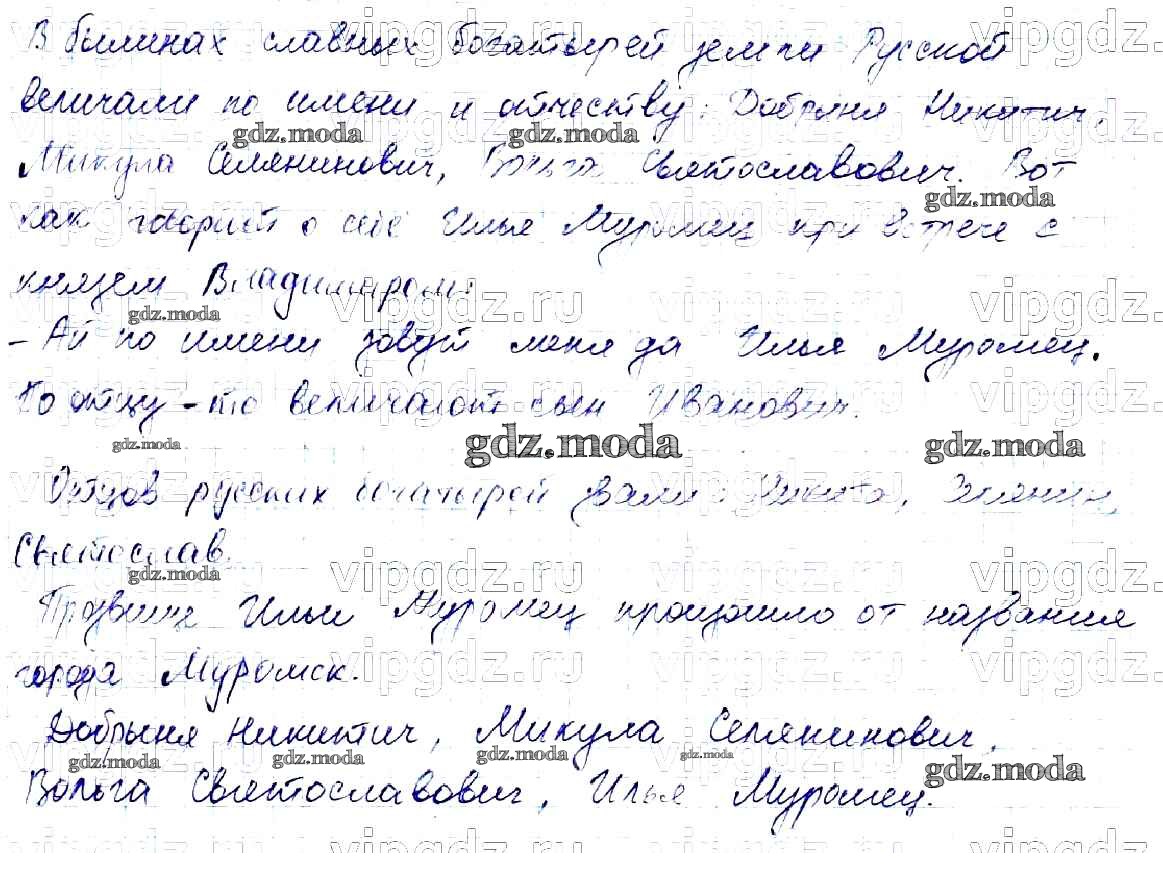 В былинах славных богатырей земли Русской
величали по имени и отчеству: Добрыня Никитич,
Микула Селянинович, Вольга Святославович. Вот
как говорит о себе Илья Муромец при встрече с
князем Владимиром:
- Ай по имени зовут меня да Илья Муромец.
По отцу-то величают сын Иванович.
Отцов русских богатырей звали: Никита, Селянин,
Святослав.
Прозвище Ильи Муромец произошло от названия
города Муромск.
Добрыня Никитич, Микула Селянинович,
Вольга Святославович, Илья Муромец.
vipgdz.ru
gdz.moda